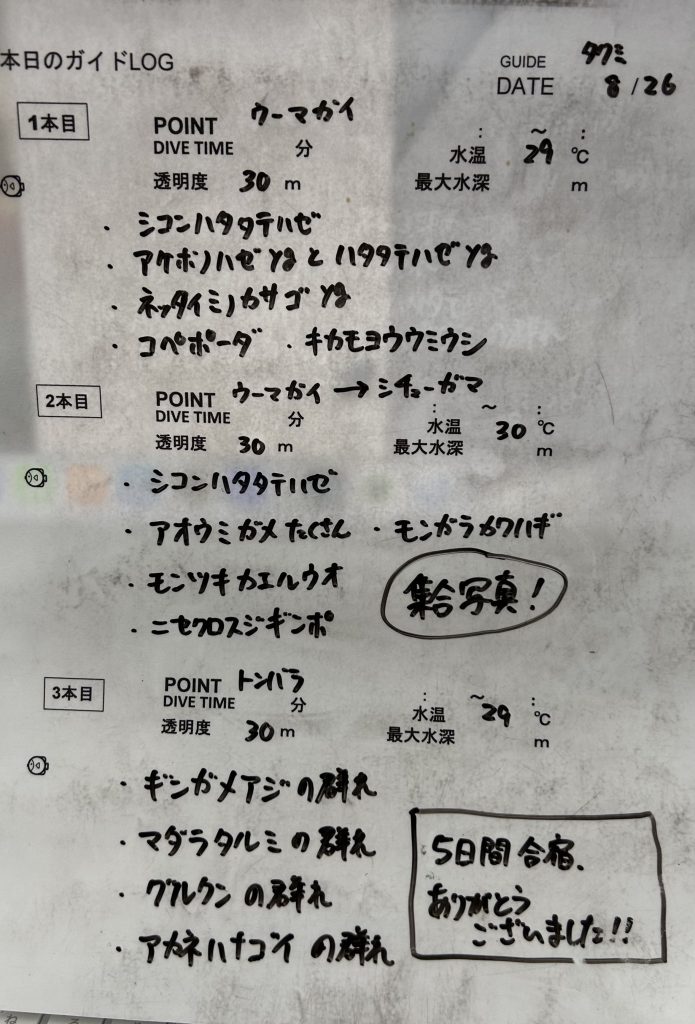 本日のガイドLOG
GUIDE タクミ
DATE 8/26
1本目
POINT ウーマガイ
DIVE TIME 分 : ～ :
水温 29 ℃
透明度 30 m 最大水深 m
・シコンハタタテハゼ
・アケボノハゼ yg と ハタタテハゼ yg
・ネッタイミノカサゴ yg
・コペポーダ ・キカモヨウウミウシ
2本目
POINT ウーマガイ → シチューガマ
DIVE TIME 分 : ～ :
水温 30 ℃
透明度 30 m 最大水深 m
・シコンハタタテハゼ
・アオウミガメ たくさん ・モンガラカワハギ
・モンツキカエルウオ
・ニセクロスジギンポ
集合写真!
3本目
POINT トンバラ
DIVE TIME 分 : ～ :
水温 29 ℃
透明度 30 m 最大水深 m
・ギンガメアジの群れ
・マダラタルミの群れ
・グルクンの群れ
・アカネハナゴイの群れ
5日間合宿、
ありがとう
ございました!!